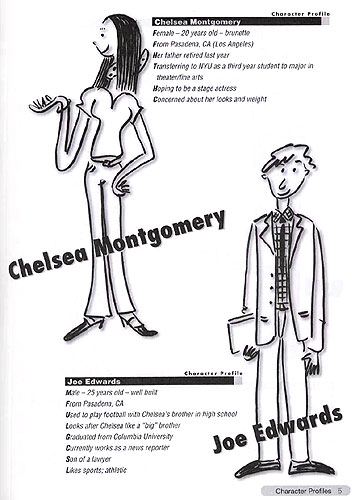 Character Profile
Chelsea Montgomery
Female – 20 years old – brunette
From Pasadena, CA (Los Angeles)
Her father retired last year
Transferring to NYU as a third year student to major in
theater/fine arts
Hoping to be a stage actress
Concerned about her looks and weight
Chelsea Montgomery
Character Profile
Joe Edwards
Male – 25 years old – well built
From Pasadena, CA
Used to play football with Chelsea's brother in high school
Looks after Chelsea like a "big" brother
Graduated from Columbia University
Currently works as a news reporter
Son of a lawyer
Likes sports; athletic
Joe Edwards
Character Profiles 5